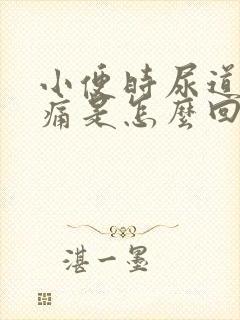 小便時尿道
痛是怎麼回
湛一墨